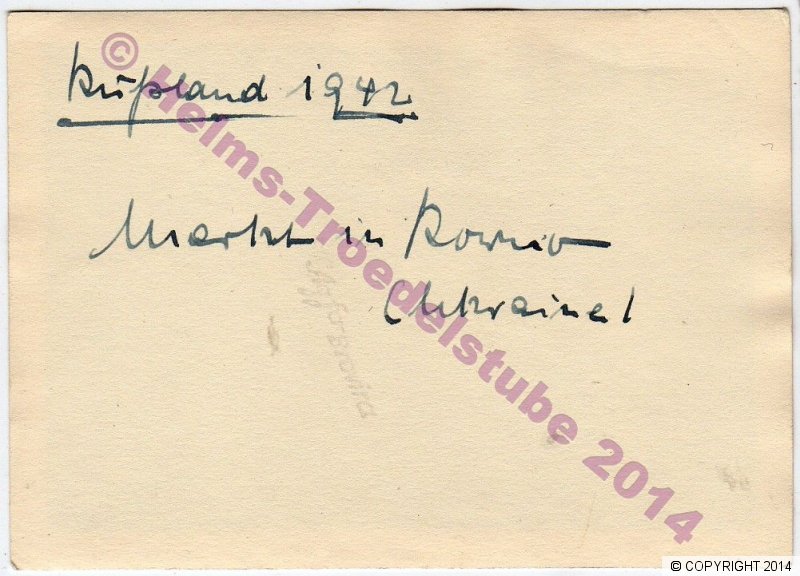 Rußland 1942
Markt in Rowno
(Ukraine)
© Helms-Troedelstube 2014
© COPYRIGHT 2014